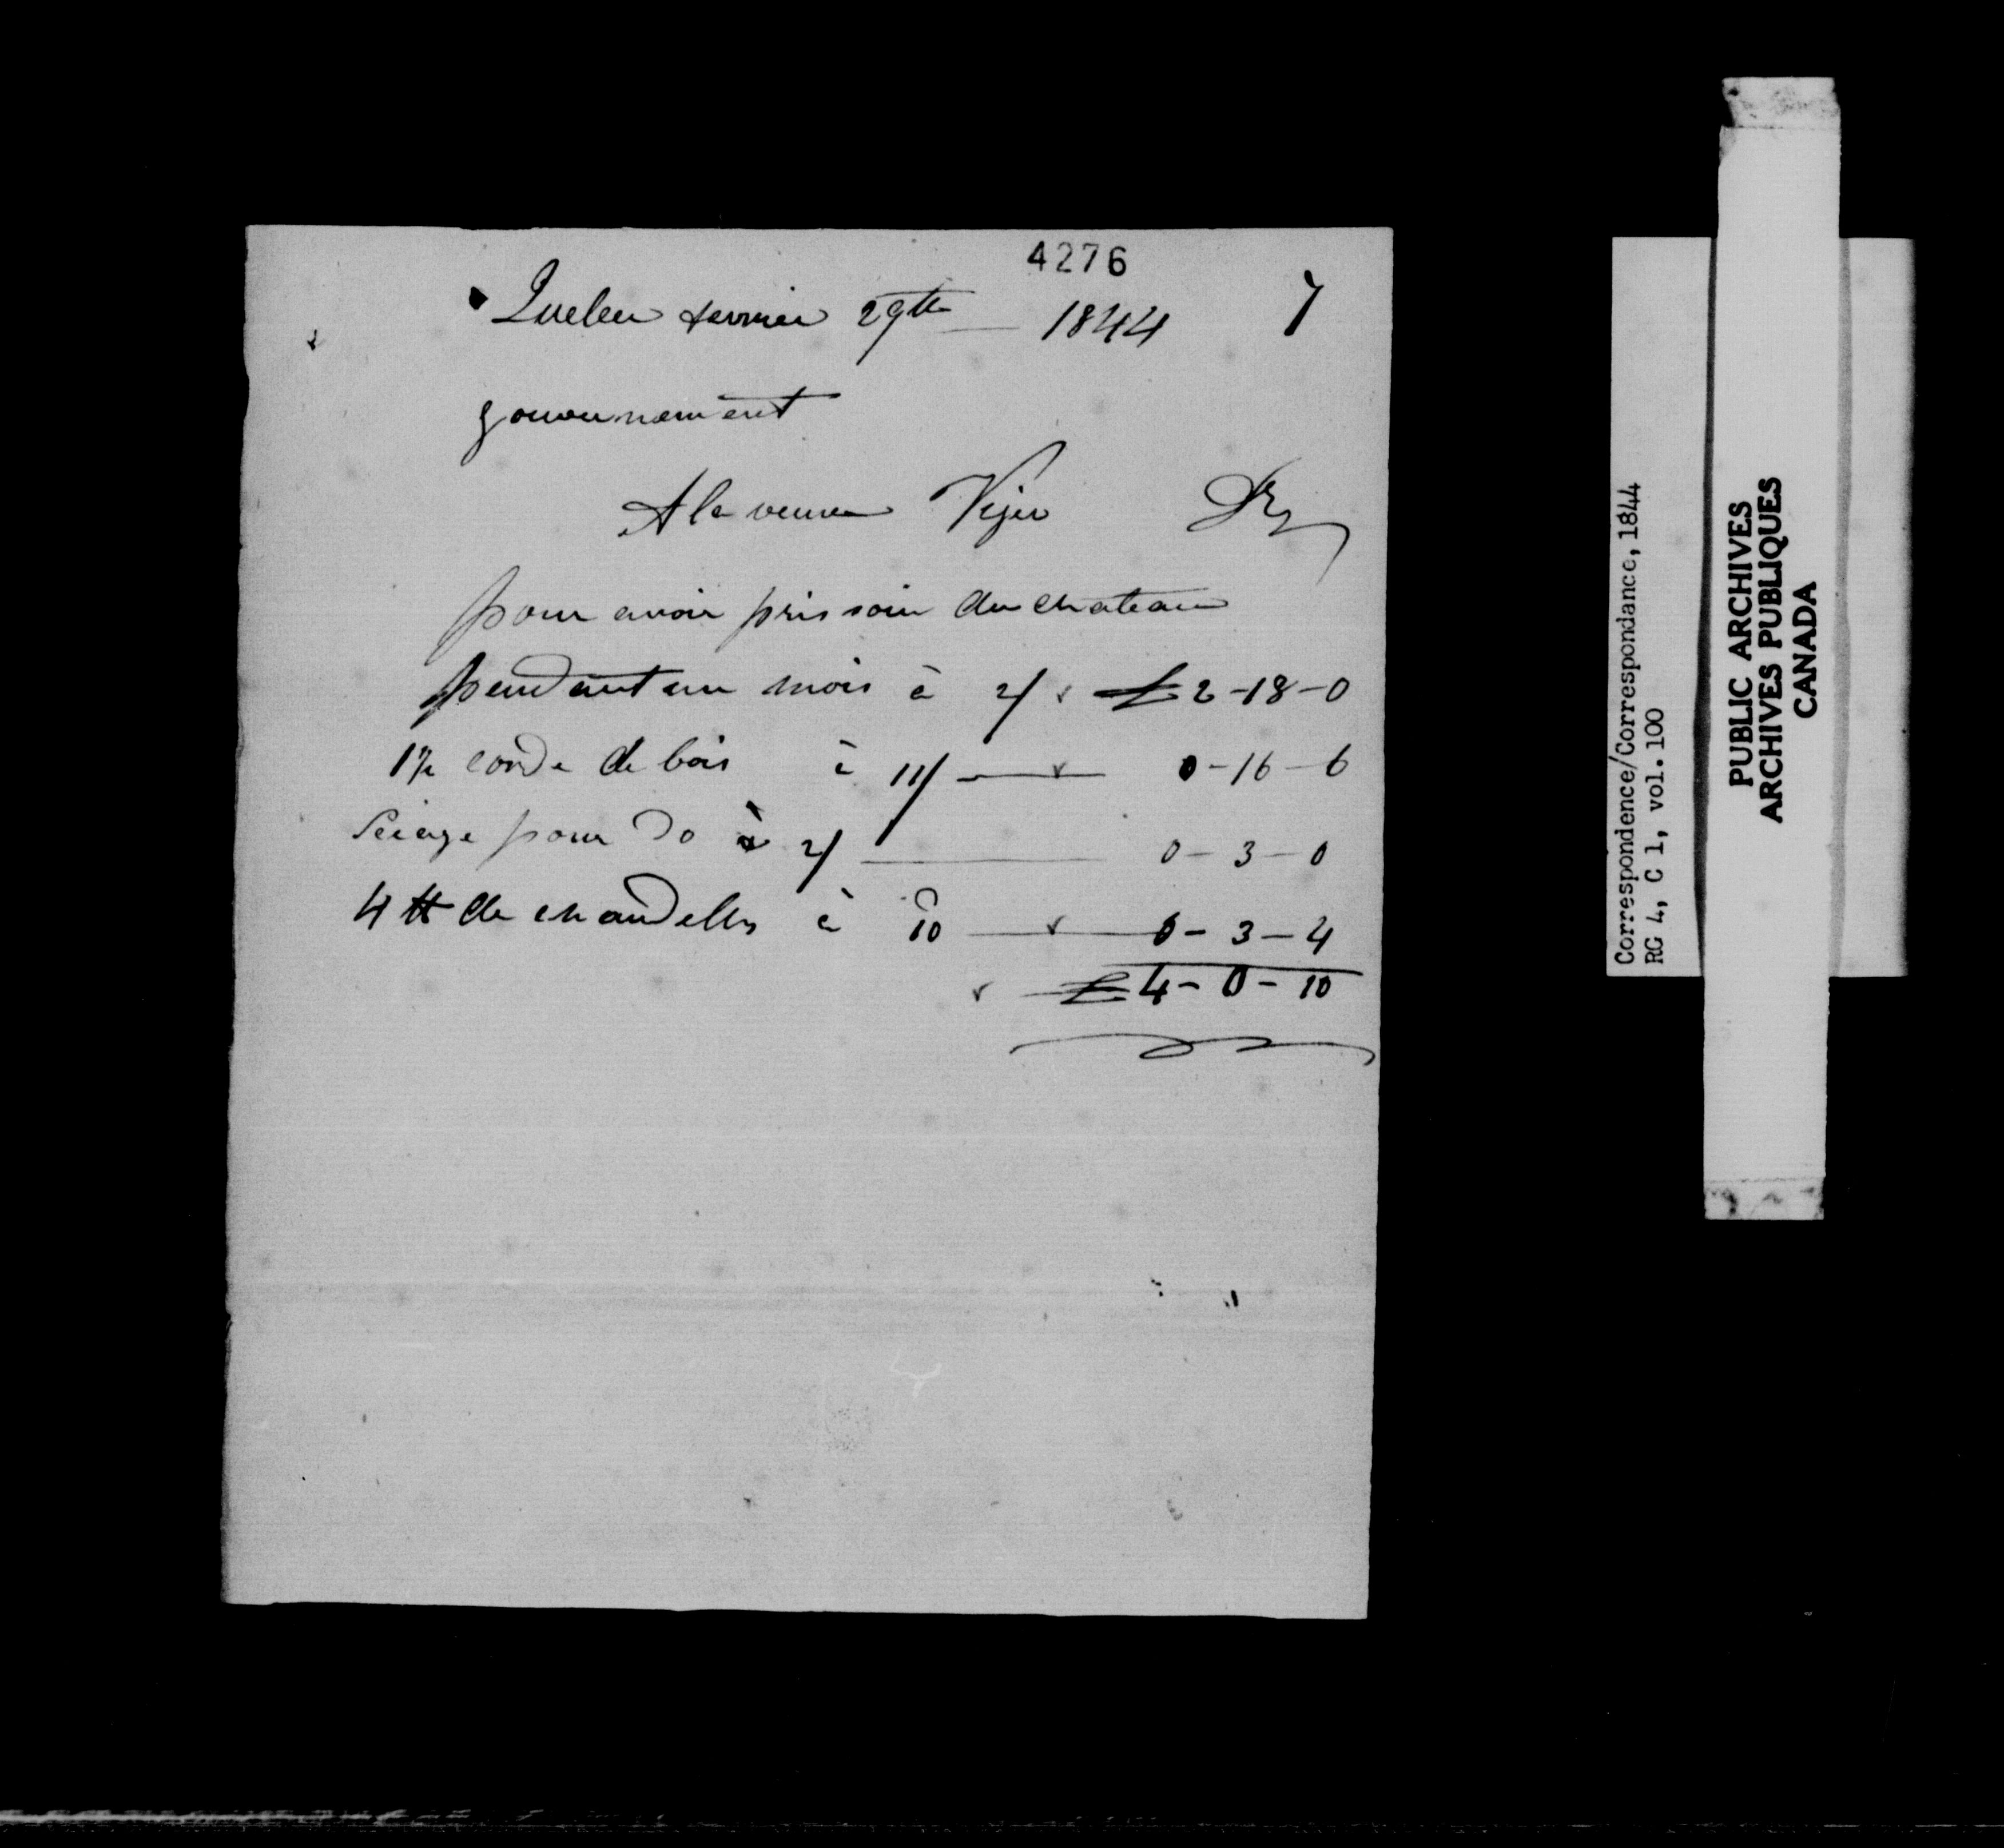 4276
7
Quebec fevrier 29th 1844
gouvernement
A la veuve Vijer Dr
pour avoir pris soin du chateau
pendant un mois à 2/ £ 2-18-0
1 1/2 corde de bois à 11/ 0-16-6
Sciage pour do à 2/ 0-3-0
4 ℔ de chandelles à 10 0-3-4
£ 4-0-10
Correspondence/Correspondance, 1844
RG 4, C 1, vol. 100
PUBLIC ARCHIVES
ARCHIVES PUBLIQUES
CANADA